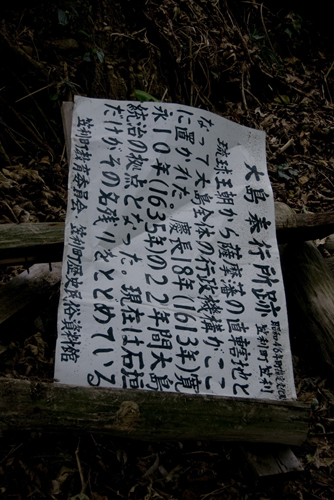 大島奉行所跡
笠利町笠利
琉球王朝から薩摩藩の直轄地と
なって大島全体の行政機構がここ
に置かれた。慶長18年(1613年)寛
永10年(1635年)の22年間大島
統治の拠点となった。現在は石垣
だけがその名残りをとどめている
笠利町教育委員会 笠利町歴史民俗資料館